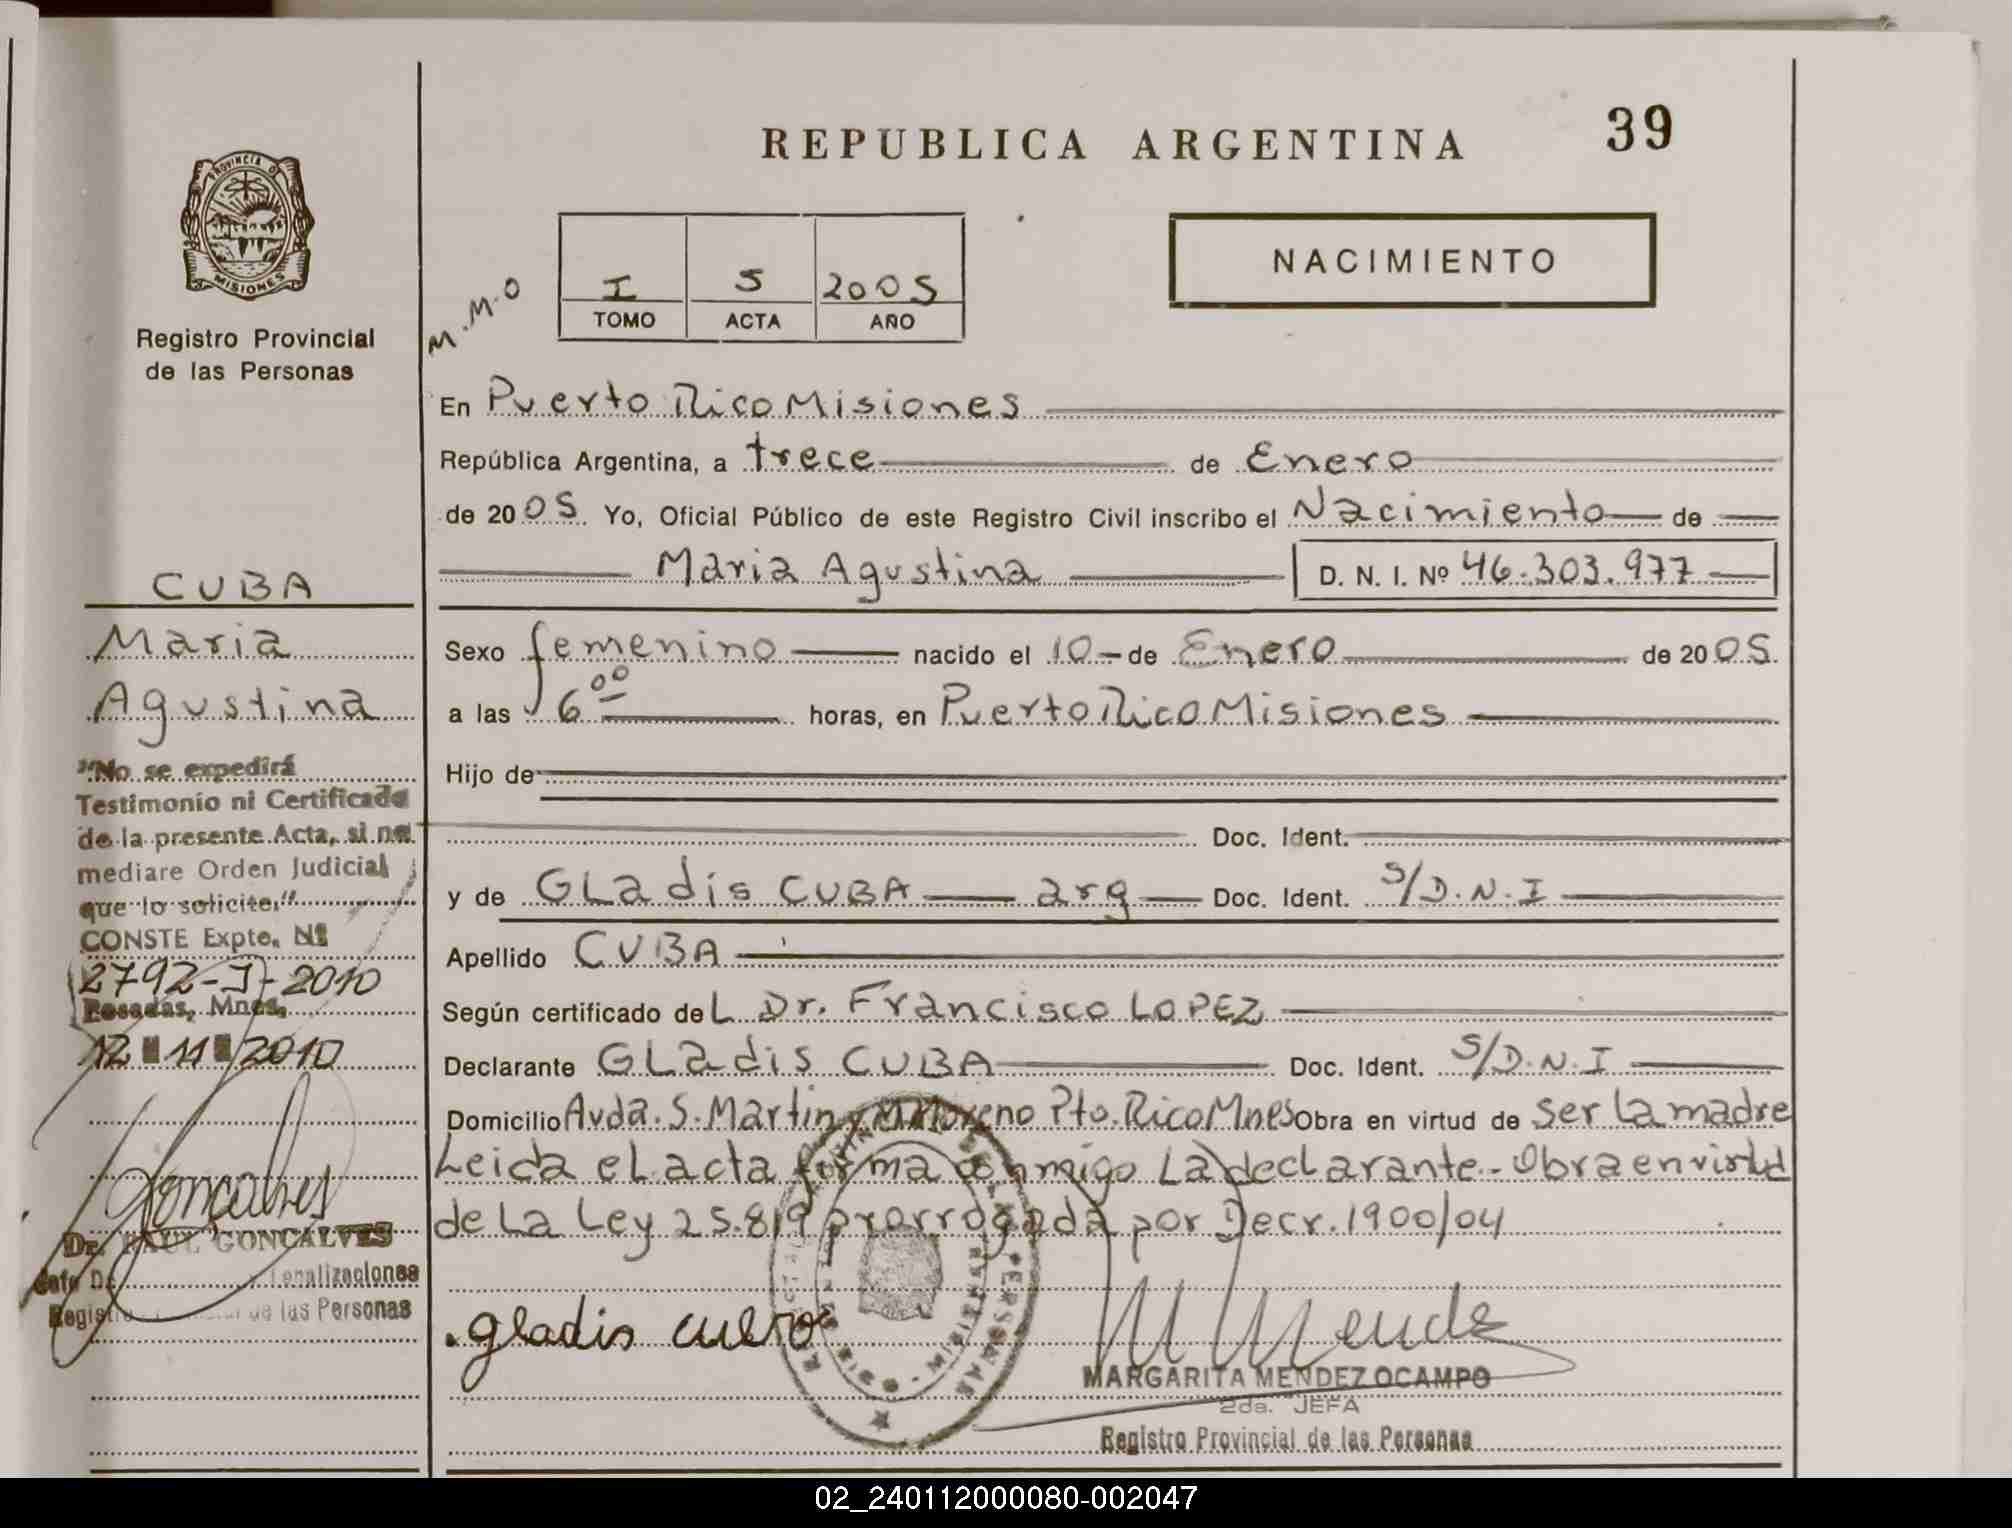 REPUBLICA ARGENTINA
39
PROVINCIA DE
MISIONES
Registro Provincial
de las Personas
M.M.O
I S 2005
TOMO ACTA AÑO
NACIMIENTO
En Puerto Rico Misiones
República Argentina, a trece de Enero
de 2005 Yo, Oficial Público de este Registro Civil inscribo el Nacimiento de
Maria Agustina D. N. I. Nº 46.303.977
Sexo femenino nacido el 10 de Enero de 2005
a las 6 00 horas, en Puerto Rico Misiones
Hijo de
Doc. Ident.
y de GLadis CUBA arg Doc. Ident. S/D.N.I
Apellido CUBA
Según certificado deL Dr. Francisco LOPEZ
Declarante GLadis CUBA Doc. Ident. S/D.N.I
Domicilio Avda. S. Martin y M Moreno Pto. Rico Mnes Obra en virtud de ser La madre
Leida eL acta firma conmigo La decLarante.- Obra en virtud
de La Ley 25.819 prorrogada por Decr. 1900/04
gladis
MARGARITA MENDEZ OCAMPO
2da. JEFA
Registro Provincial de las Personas
CUBA
Maria
Agustina
"No se expedirá
Testimonio ni Certificado
de la presente Acta, si no
mediare Orden Judicial
que lo solicite."
CONSTE Expte. Nº
2792-J-2010
Posadas, Mnes,
12 11 2010
Goncalves
Dr. RAUL GONCALVES
Jefe D Legalizaciones
Registro Provincial de las Personas
02_240112000080-002047